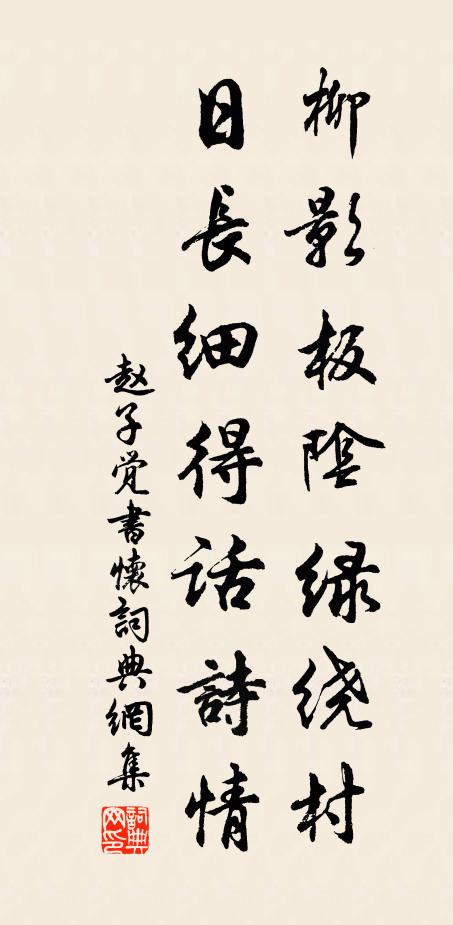 柳影板陰緑绕村
日長细得话詩情
赵子觉書懷詞典網集
詞典网印